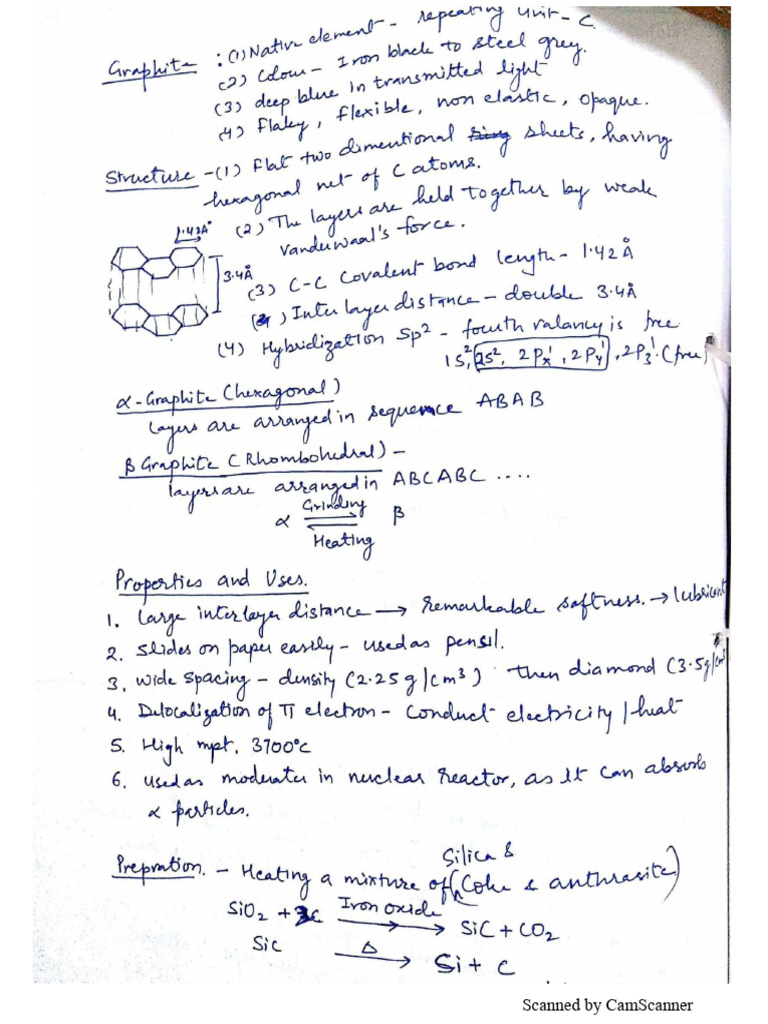 Graphite : (1) Native element - repeating unit - C.
(2) Colour - Iron black to steel grey.
(3) deep blue in transmitted light
(4) Flaky, flexible, non elastic, opaque.
Structure - (1) Flat two dimentional sheets, having
hexagonal net of C atoms.
(2) The layers are held together by weak
Vanderwaal's force.
1.42A°
3.4Å
(3) C-C Covalent bond length - 1.42Å
(3) Inter layer distance - double 3.4Å
(4) Hybridization Sp² - fourth valancy is free
1S², 2S², 2Px¹, 2Py¹, 2P3¹ (free)
α-Graphite (hexagonal)
layers are arranged in sequence ABAB
β Graphite (Rhombohedral) -
layers are arranged in ABCABC ....
α Grinding β
Heating
Properties and Uses.
1. large interlayer distance → remarkable softness. → lubricant
2. Slides on paper easily - used as pensil.
3. wide spacing - density (2.25g/cm³) then diamond (3.5g/cm³
4. Delocalization of π electron - conduct electricity / heat
5. High mpt. 3700°C
6. used as moderater in nuclear reactor, as it can absorb
α particles.
Silica &
Prepration. - Heating a mixture of (Coke & anthrasite)
SiO₂ + 3C Iron oxide → SiC + CO₂
SiC Δ → Si + C
Scanned by CamScanner